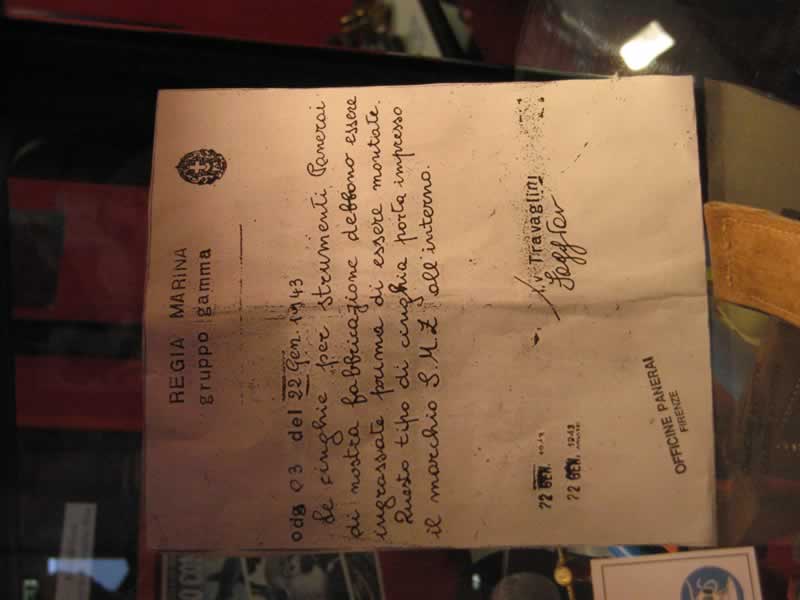 REGIA MARINA
gruppo gamma
odg 03 del 22 Gen 1943
Le cinghie per strumenti Panerai
di nostra fabbricazione debbono essere
ingrassate prima di essere montate.
Questo tipo di cinghia porta impresso
il marchio S.M.Z sall'interno.
Travaglini
22 GEN. 1943
22 GEN. 1943
OFFICINE PANERAI
FIRENZE